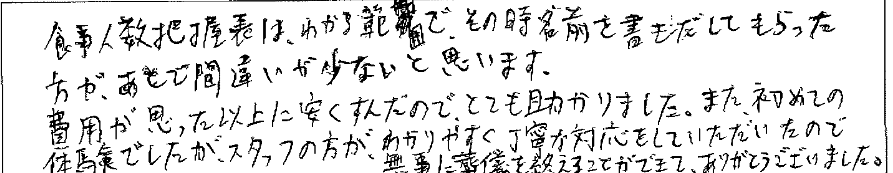 食事人数把握表は、わかる範囲で、その時名前を書きだしてもらった
方が、あとで間違いが少ないと思います。
費用が思った以上に安くすんだので、とても助かりました。また、初めての
体験でしたが、スタッフの方が、わかりやすく丁寧な対応をしていただいたので
無事に葬儀を終えることができて、ありがとうございました。